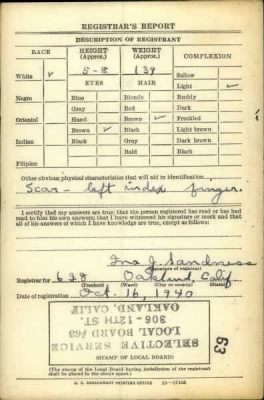 REGISTRAR'S REPORT
DESCRIPTION OF REGISTRANT
RACE HEIGHT (Approx.) WEIGHT (Approx.) COMPLEXION
White ✓ 5-8 139 Sallow
EYES HAIR Light ✓
Negro Blue Blonde Ruddy
Gray Red Dark
Oriental Hazel Brown ✓ Freckled
Brown ✓ Black Light brown
Indian Black Gray Dark brown
Bald Black
Filipino
Other obvious physical characteristics that will aid in identification
Scar - left index finger.
I certify that my answers are true; that the person registered has read or has had
read to him his own answers; that I have witnessed his signature or mark and that
all of his answers of which I have knowledge are true, except as follows:
Ina J. Sandness
(Signature of registrar)
Registrar for 628 Oakland, Calif.
(Precinct) (Ward) (City or county) (State)
Date of registration Oct. 16, 1940
SELECTIVE SERVICE
LOCAL BOARD #63
306 - 12TH ST.
OAKLAND, CALIF.
63
(STAMP OF LOCAL BOARD)
(The stamp of the Local Board having jurisdiction of the registrant
shall be placed in the above space.)
U. S. GOVERNMENT PRINTING OFFICE 16—17105